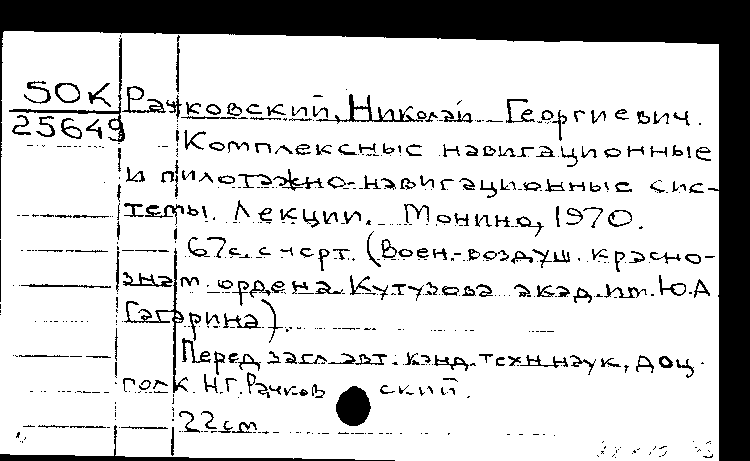 50К Рачковский, Николай Георгиевич.
25649
Комплексные навигационные
и пилотажно-навигационные сис-
темы. Лекции. Монино, 1970.
67с. с черт. (Воен.-воздуш. красно-
знам. ордена Кутузова акад. им. Ю.А.
Гагарина).
Перед загл. авт. канд. техн. наук, доц.
полк. Н.Г. Рачковский.
22см